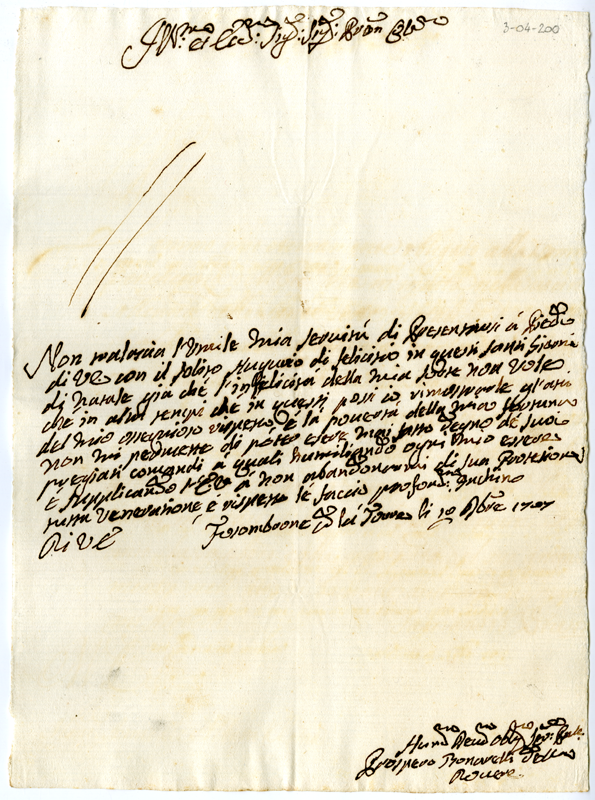 3-04-200
Ill.mo et Ecc.mo Sig.r Sig.r Pron Col.mo
Non tralascia l'umile mia servitù di Presentarsi à Piedi
di VE con il solito Augurio di felicità in questi santi Giorni
di natale già che l'infelicità della mia sorte non vole
che in altri tempi che in questi possi io rimostrarle gl'atti
del mio ossequioso rispetto, e la povertà della mia fortuna
non mi permette di poter esser mai fatto degno de suoi
pregiati comandi a quali humiliando ogni mio essere
e supplicando VE a non abandonarmi di sua Protezione
tutta venerazione è rispetto le faccio profond.mo Inchino
Di VE Fosombrone li 19 Xbre 1707
Hum.mo Deu.mo Obl.mo Ser.re
Prospero Bonarelli Della
Rovere